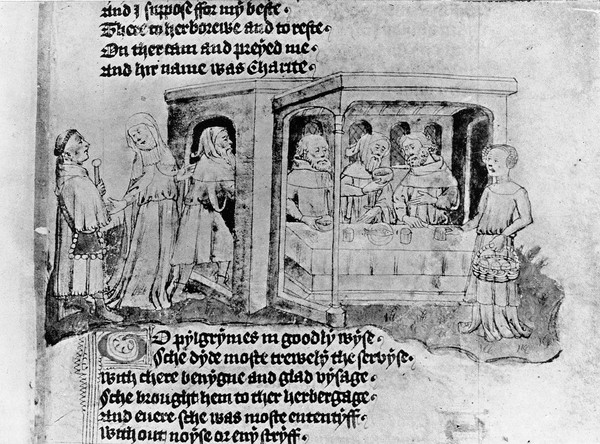 And I suppose ffor my beste
There to herborewe and to reste
On ther cam and preyed me
And hir name was Charite
To pylgrymes in goodly wyse
Sche dyde moste trewely the servyse
With chere benygne and glad vysage
Sche brought hem to ther herbergage
And evere sche was moste ententyff
With out noyse or eny stryff